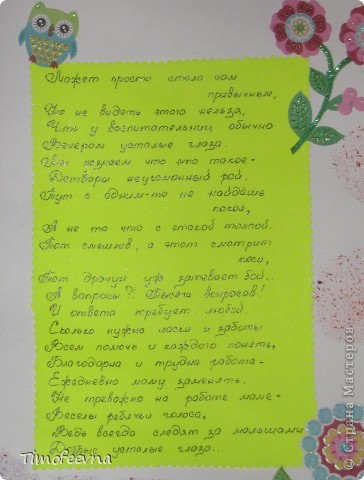 Может просто стало вам
привычным,
Но не видеть этого нельзя,
Что у воспитательниц обычно
Вечером усталые глаза.
Мы узнаем что это такое-
Детворы неугомонный рой.
Тут с одним-то не найдёшь
покоя,
А не то что с этакой толпой.
Тот смешлив, а этот смотрит
косо,
Тот драчун уж затевает бой...
А вопросы? Тысяча вопросов!
И ответа требует любой.
Сколько нужно ласки и заботы
Всем помочь и каждого понять,
Благодарна и трудна работа-
Ежедневно маму заменять.
Не тревожно на работе маме-
Веселы ребячьи голоса,
Ведь всегда следят за малышами
Добрые усталые глаза...
Timofeevna
© Страна Мастеров